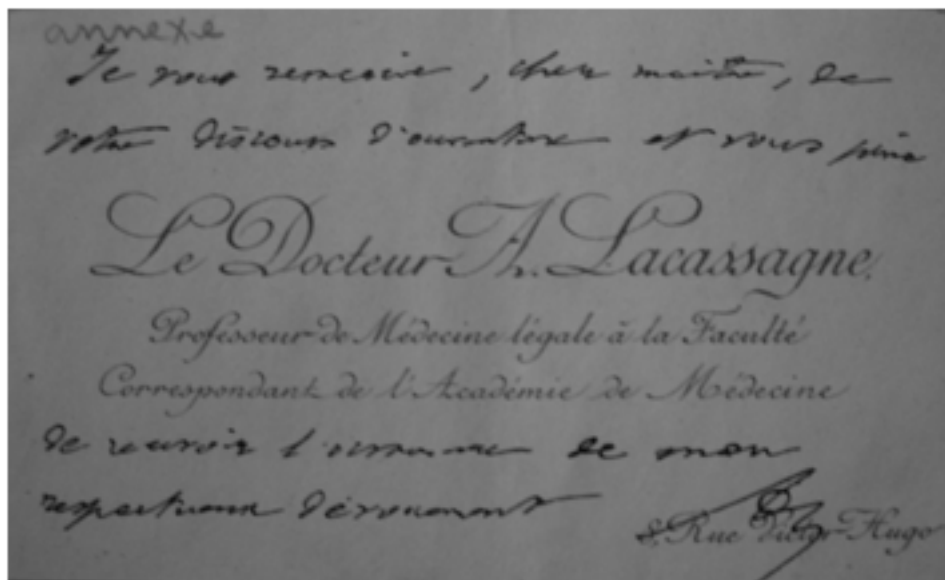 annexe
Je vous remercie, cher maître, de
votre discours d'ouverture et vous prie
Le Docteur A. Lacassagne,
Professeur de Médecine légale à la Faculté
Correspondant de l'Académie de Médecine
de recevoir l'assurance de mon
respectueux dévouement
8, Rue Victor Hugo